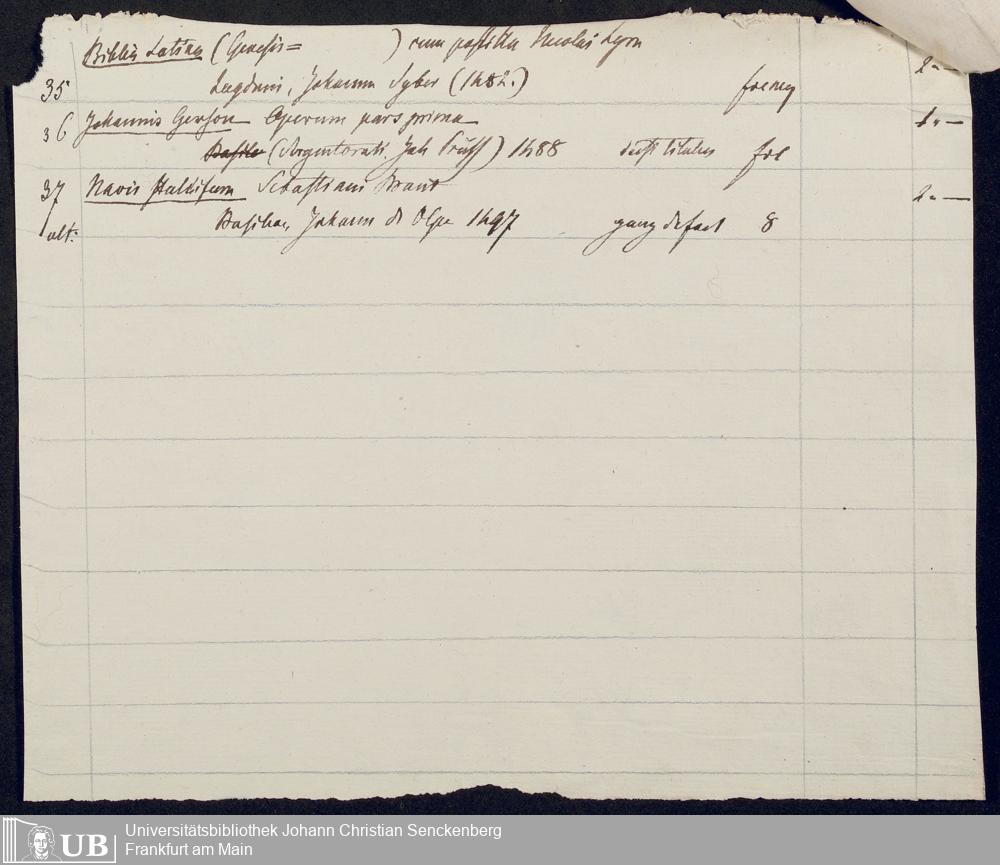 Biblia Latina (Genesis= ) cum postilla Nicolai Lyra 2 -
35 Lugduni, Johannes Syber (1482.)
36 Johannis Gerson Operum pars prima 1. -
Basilea (Argentorati, Joh Prüss) 1488 deest titulus fol
37 Navis stultifera Sebastiani Brant 2. -
ult: Basileae, Johann de Olpe 1497 ganz defect 8
UB
Universitätsbibliothek Johann Christian Senckenberg
Frankfurt am Main